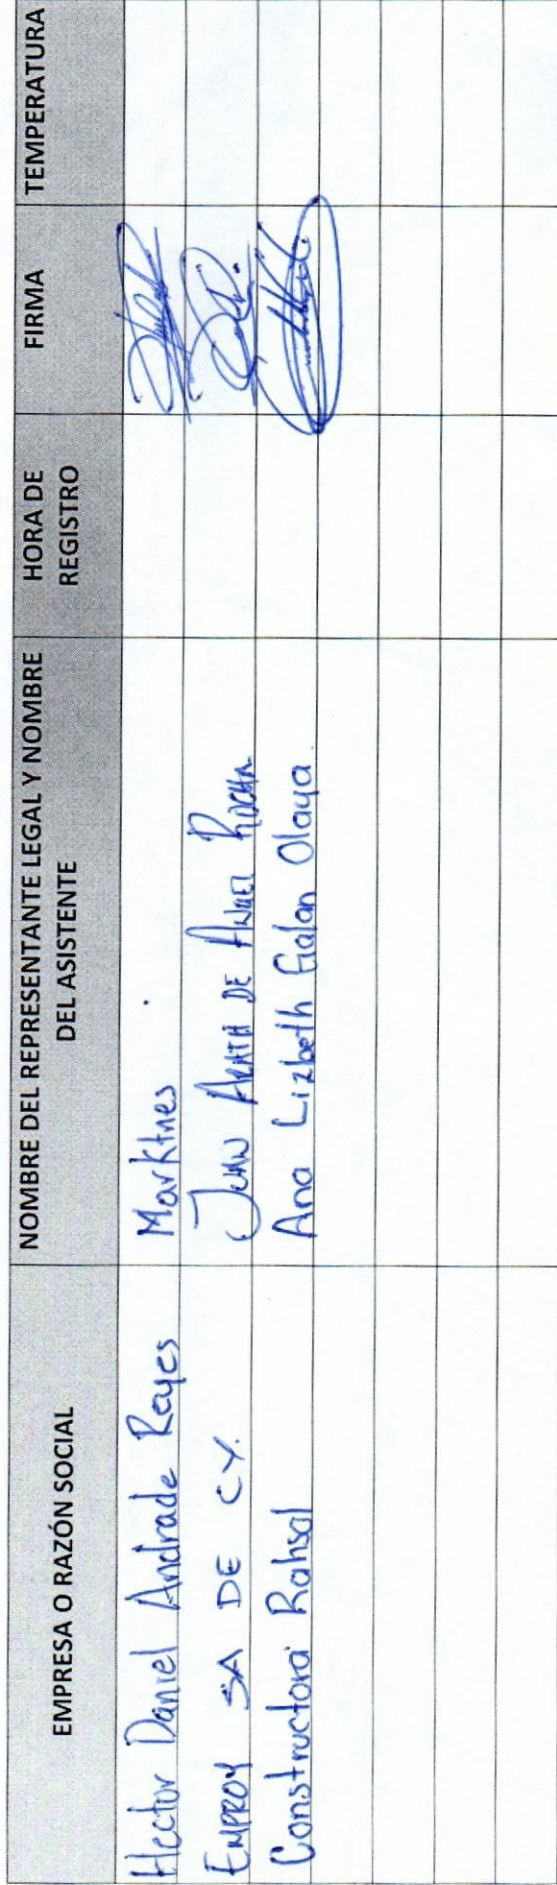 EMPRESA O RAZÓN SOCIAL
NOMBRE DEL REPRESENTANTE LEGAL Y NOMBRE
DEL ASISTENTE
HORA DE
REGISTRO
FIRMA
TEMPERATURA
Hector Daniel Andrade Reyes
Marktnes
EMPROY SA DE CV.
JUAN DE ANGEL ROCHA
Constructora Rahsal
Ana Lizbeth Galan Olaya.